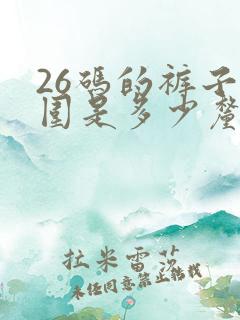 26码的裤子
围是多少厘
拉米雷茨
未经同意禁止转载